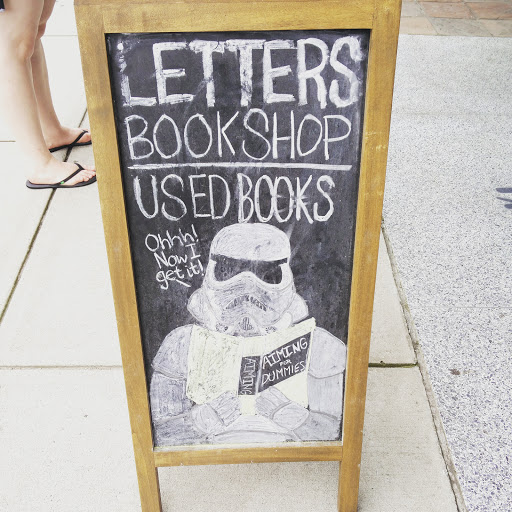 LETTERS
BOOKSHOP
USED BOOKS
Ohhh!
Now I
get it!
AIMING
AIMING
FOR
DUMMIES